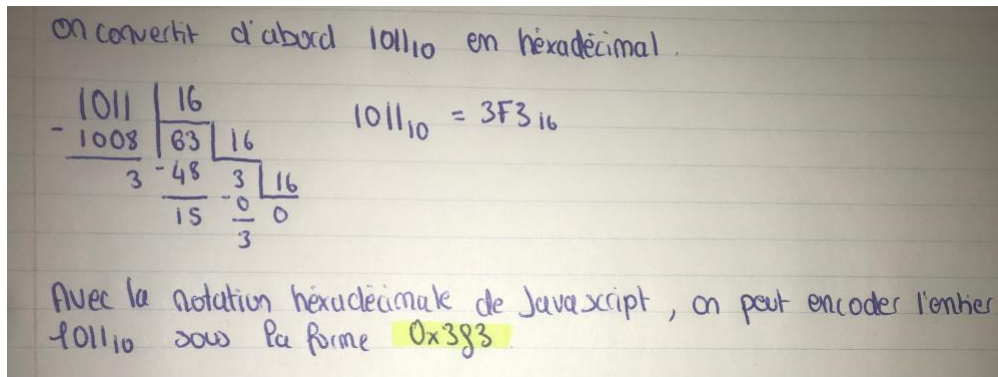 On convertit d'abord 1011₁₀ en héxadécimal.
1011 | 16
- 1008 | 63 | 16
3 - 48 | 3 | 16
15 - 0 | 0
3
1011₁₀ = 3F3₁₆
Avec la notation héxadécimale de Javascript, on peut encoder l'entier
1011₁₀ sous la forme 0x3f3.